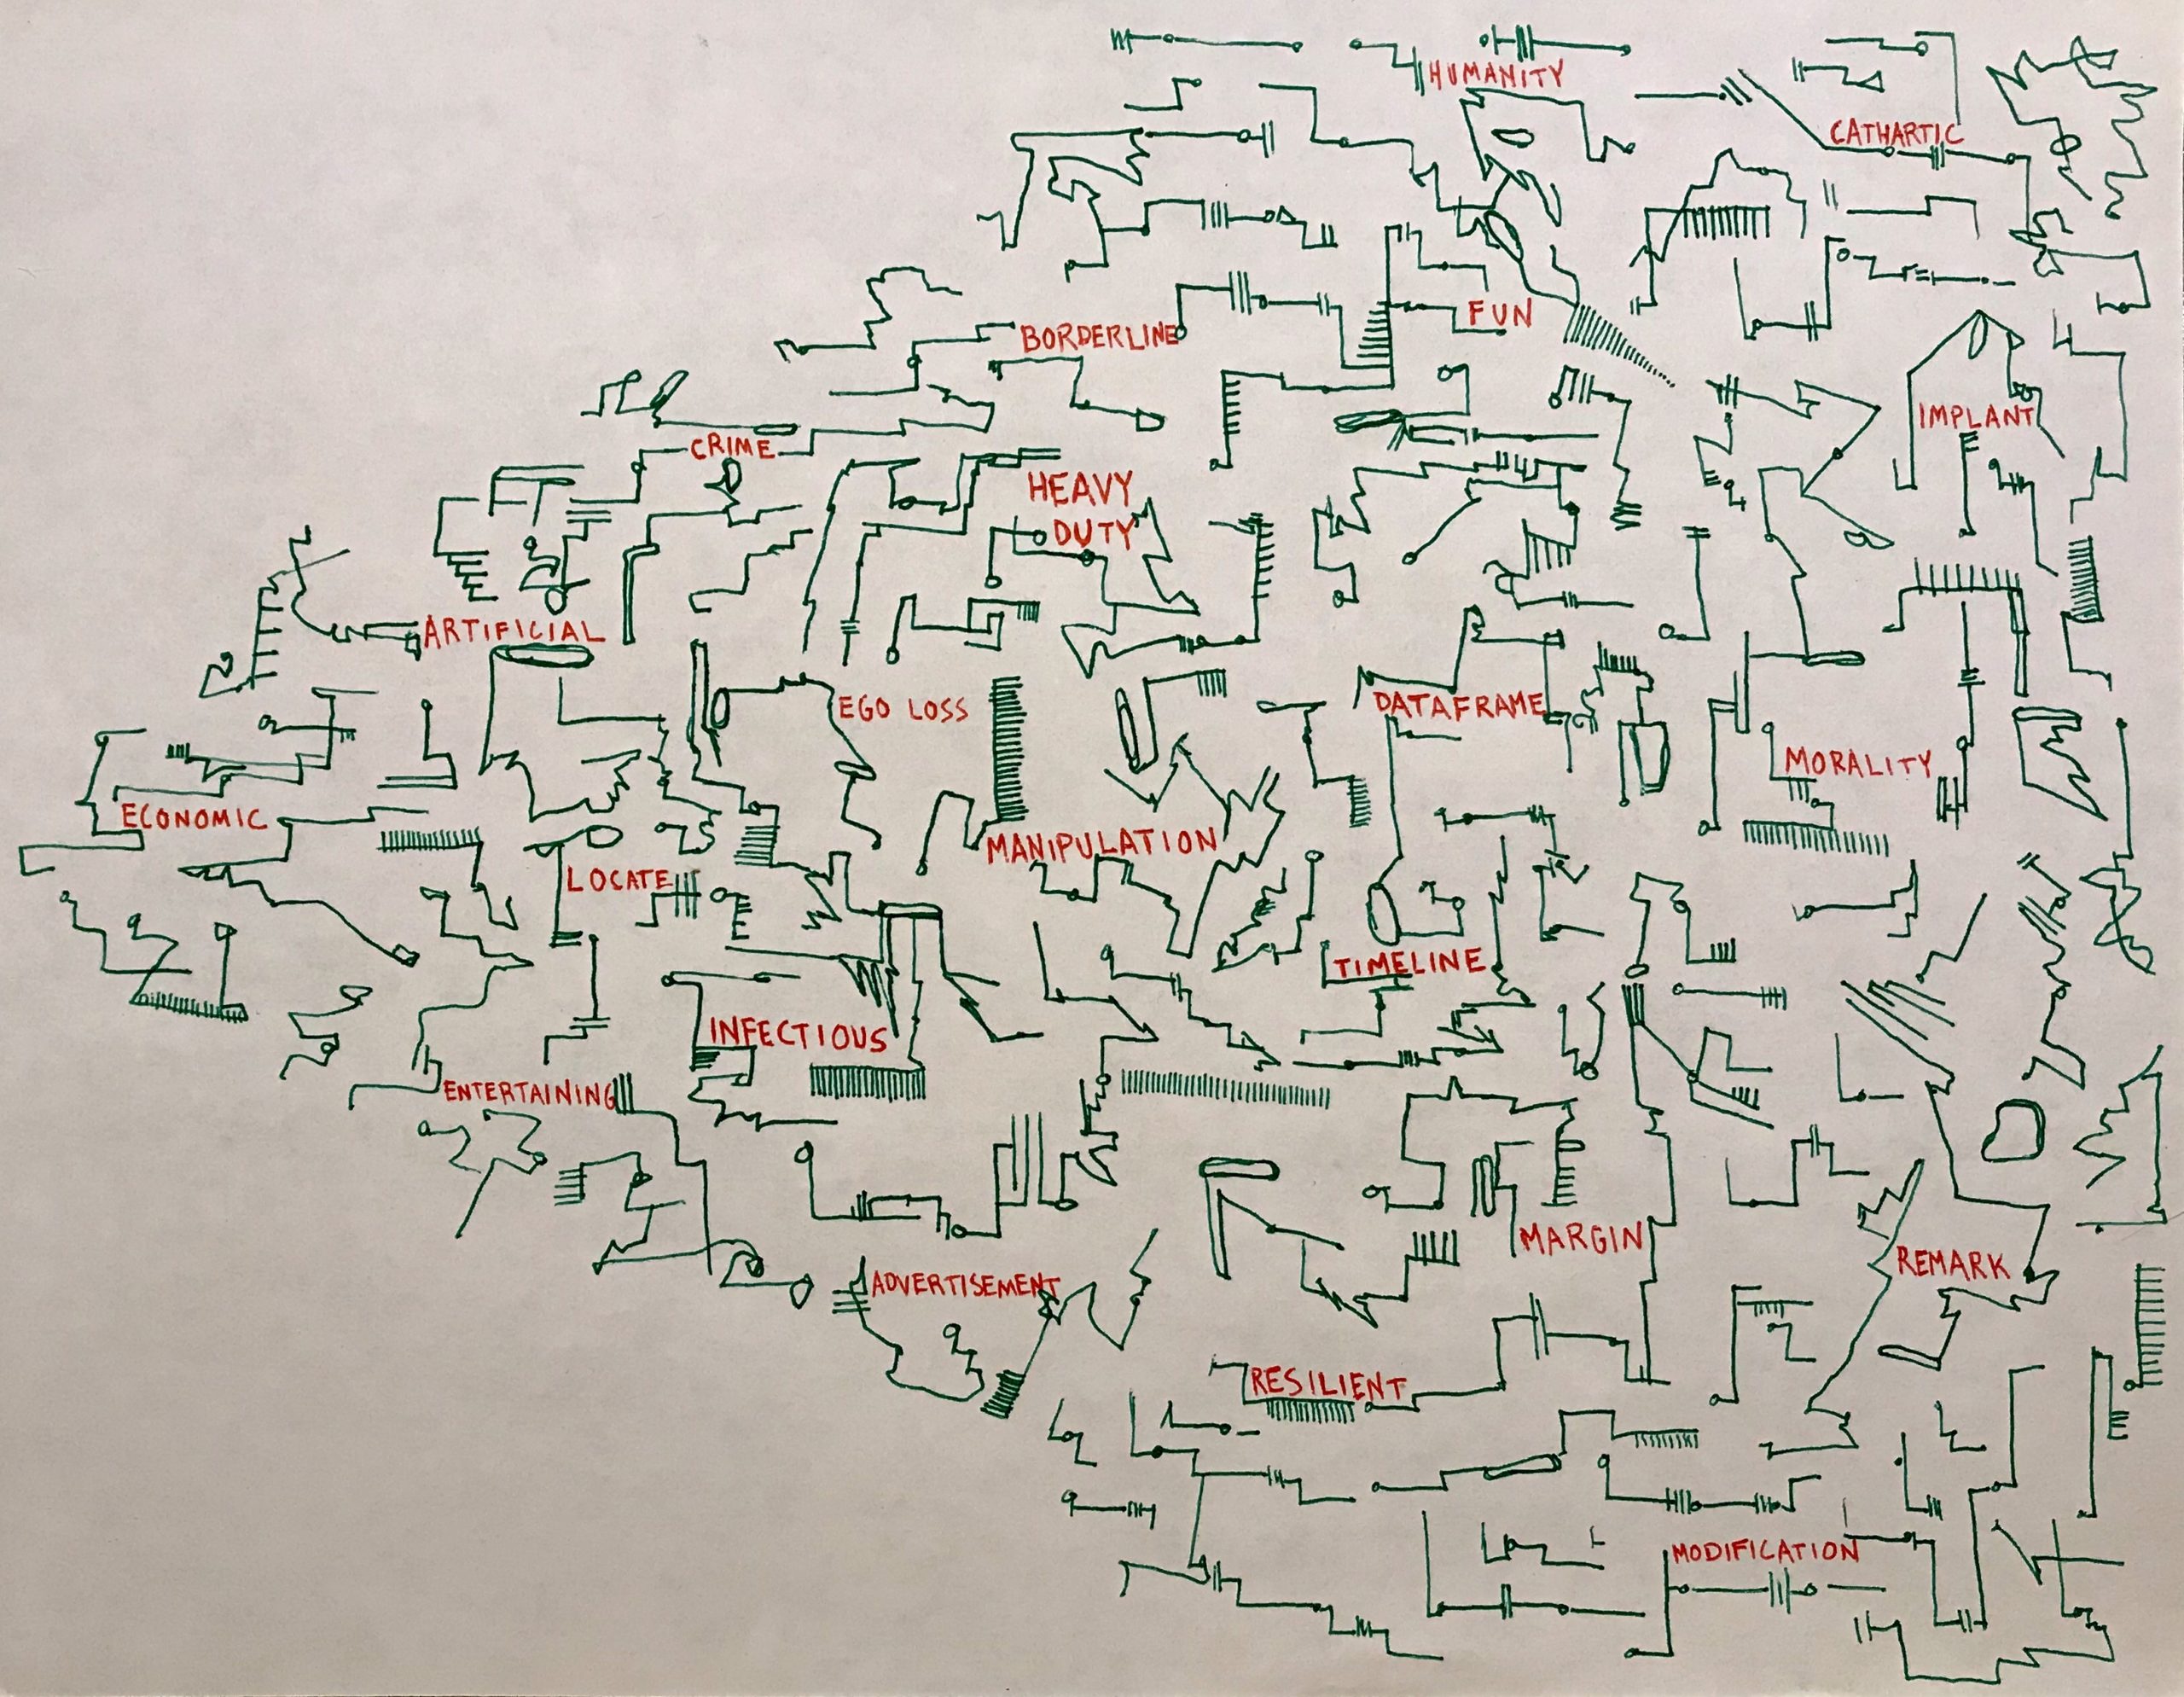 HUMANITY
CATHARTIC
FUN
BORDERLINE
IMPLANT
CRIME
HEAVY
DUTY
ARTIFICIAL
EGO LOSS
DATAFRAME
MORALITY
ECONOMIC
MANIPULATION
LOCATE
TIMELINE
INFECTIOUS
ENTERTAINING
MARGIN
REMARK
ADVERTISEMENT
RESILIENT
MODIFICATION